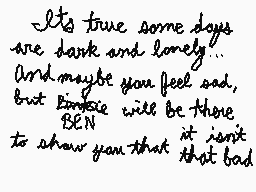 It's true some days
are dark and lonely...
And maybe you feel sad,
but will be there
BEN
to show you that it isn't
that bad